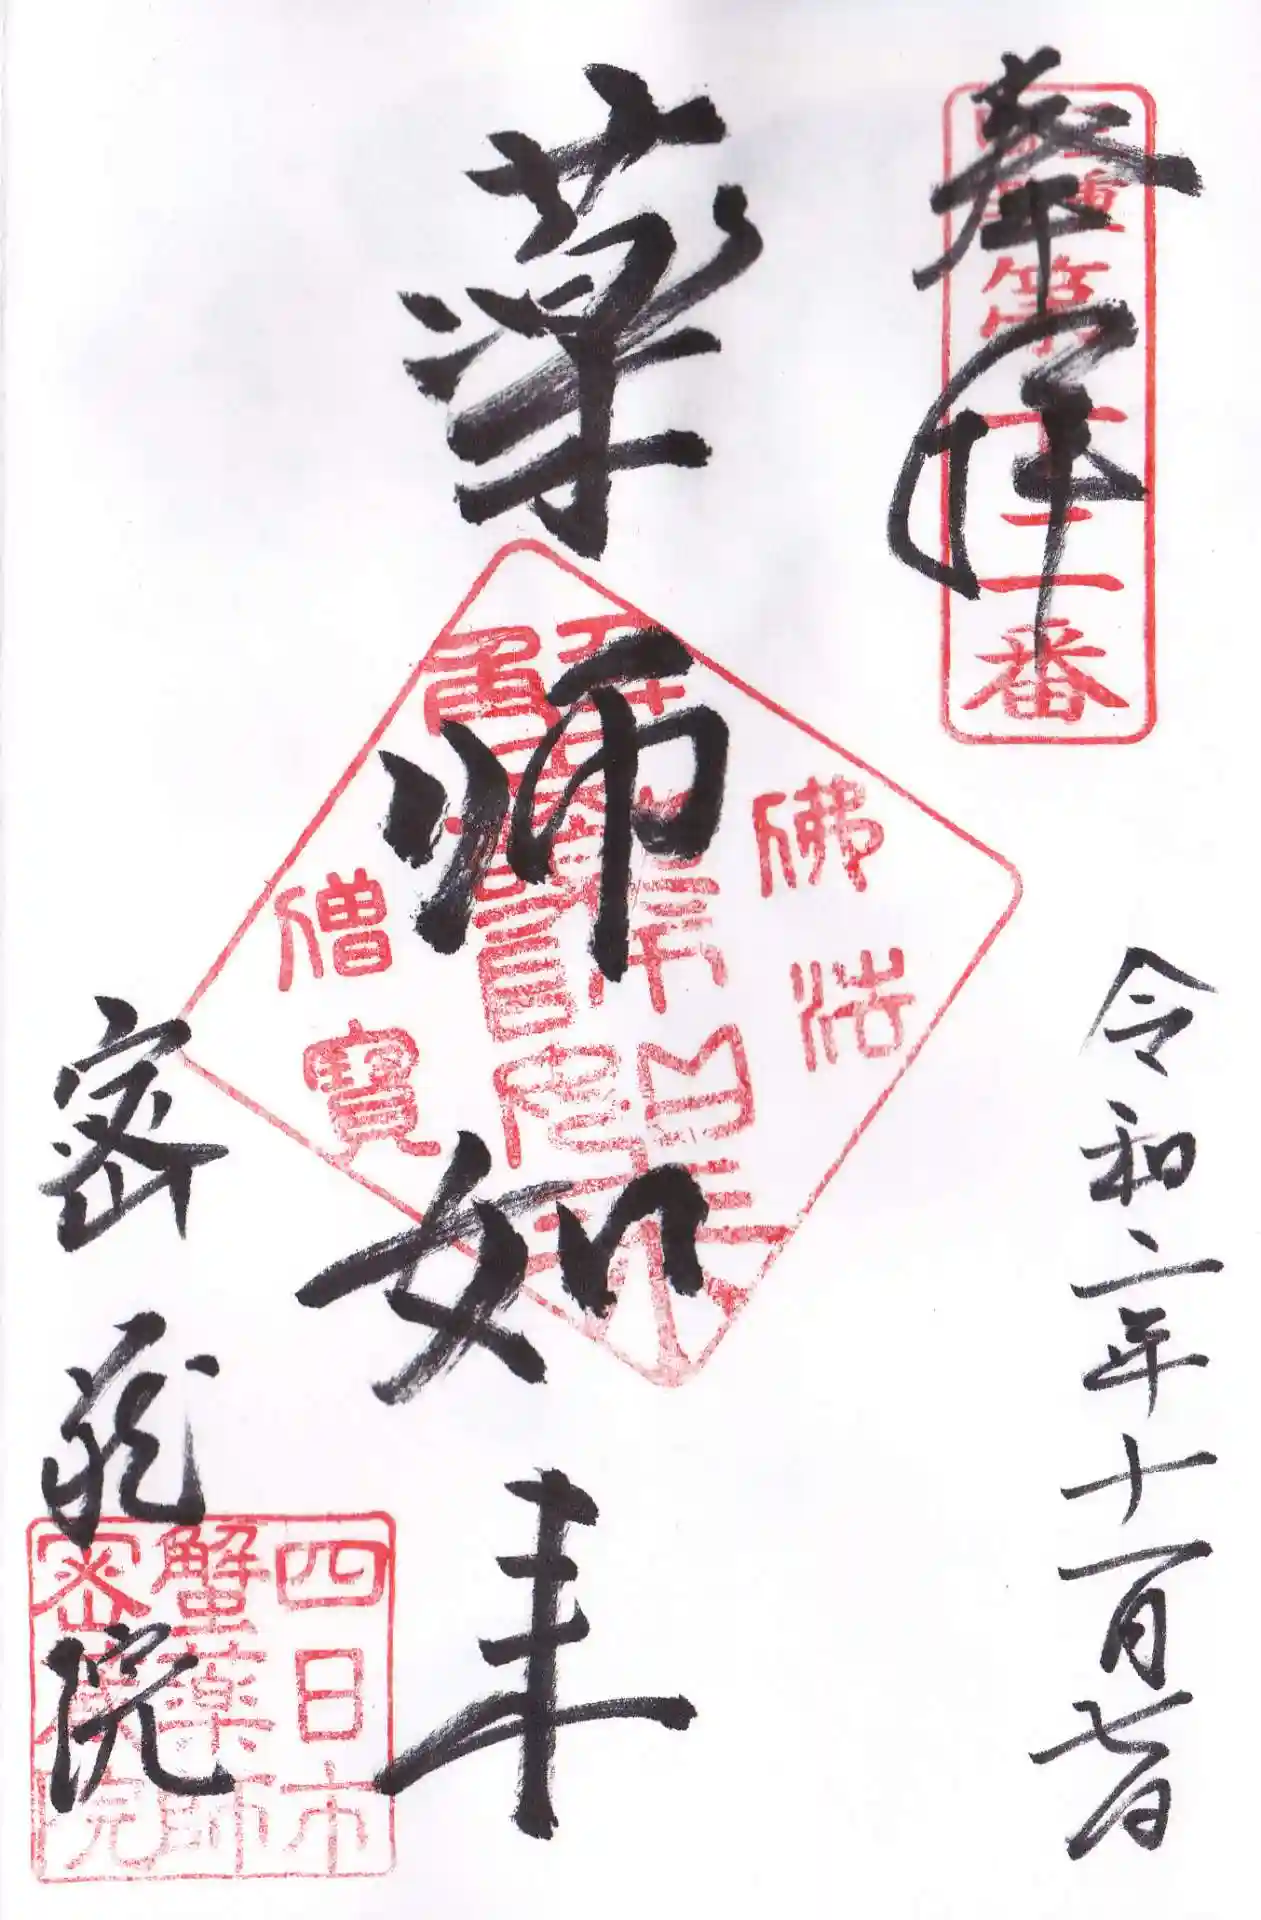 奉拝
三重四国第十二番
令和二年十一月七日
薬師如来
佛法
僧寶
密蔵院
四日市
蟹薬師
密蔵院